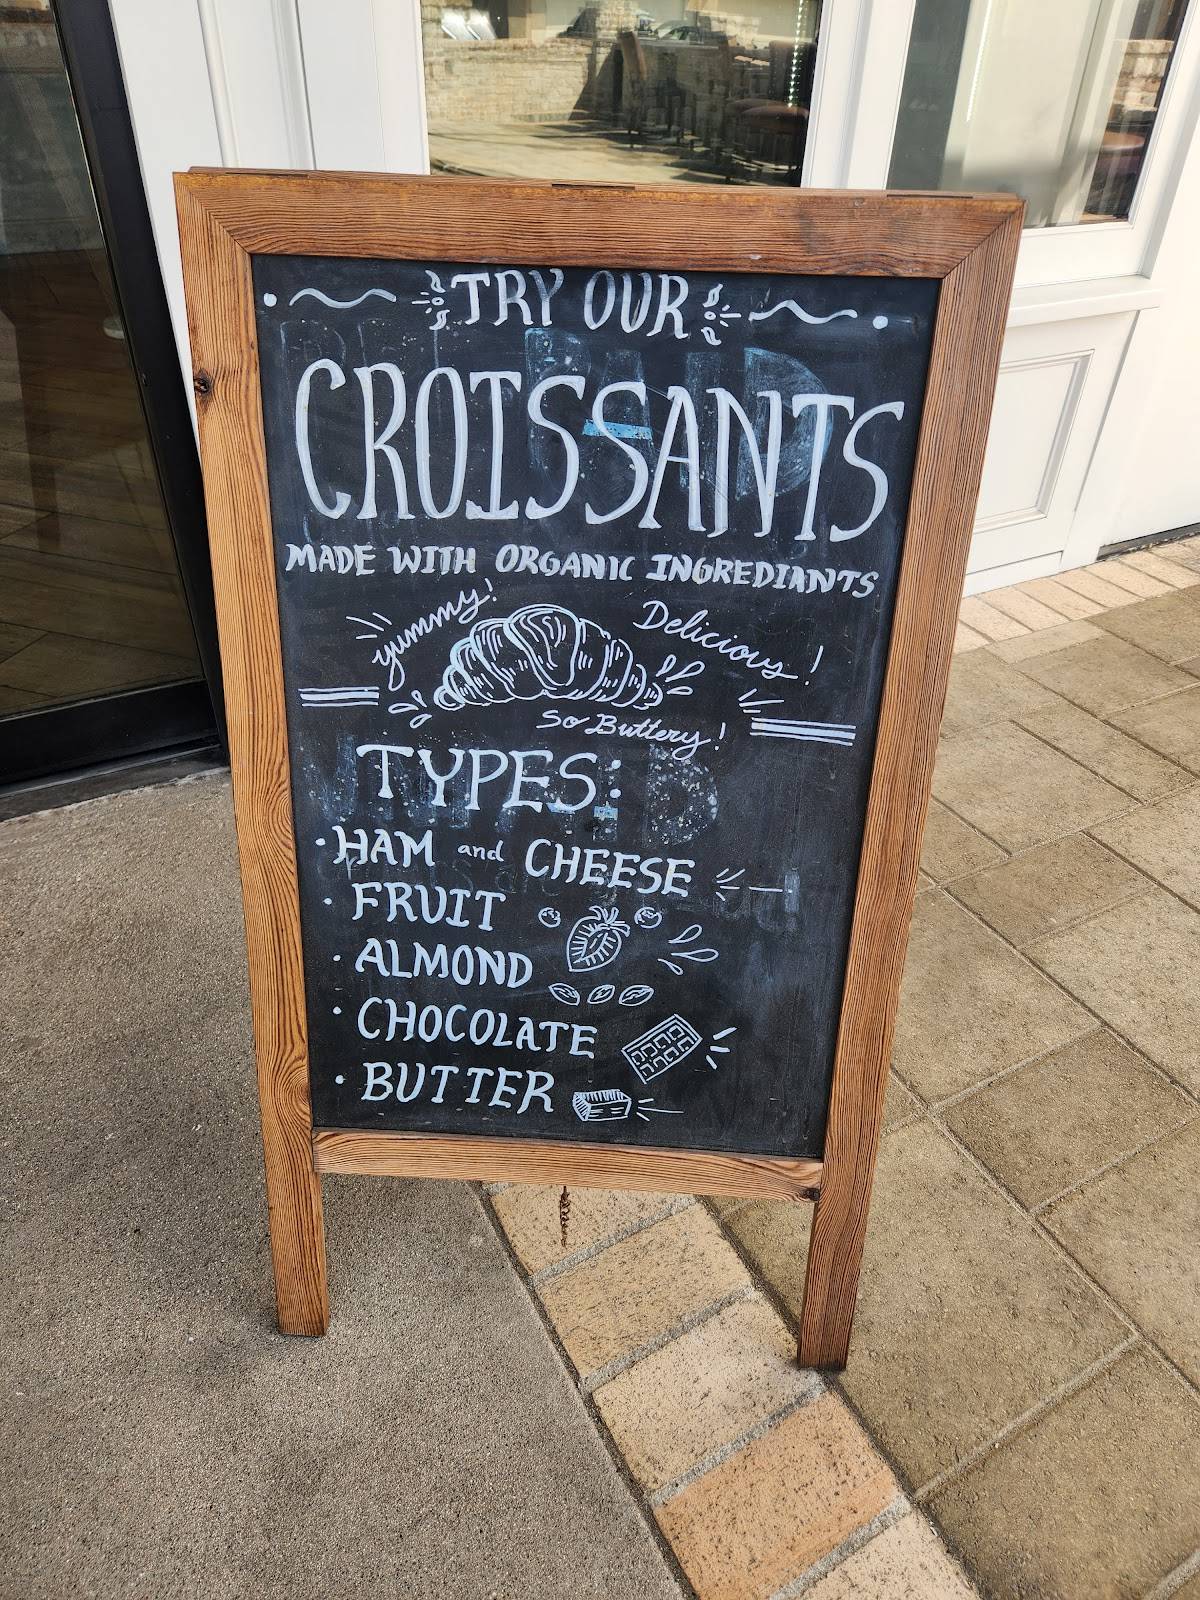 TRY OUR
CROISSANTS
MADE WITH ORGANIC INGREDIANTS
yummy!
Delicious!
So Buttery!
TYPES:
· HAM and CHEESE
· FRUIT
· ALMOND
· CHOCOLATE
· BUTTER